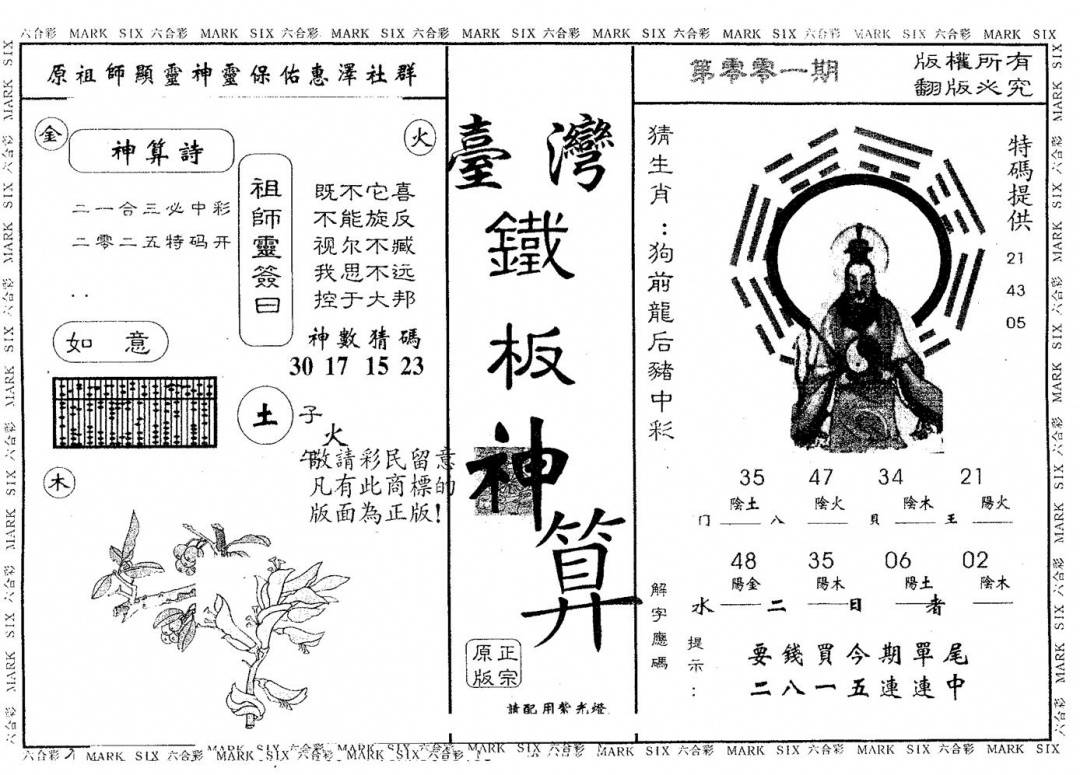 六合彩 MARK SIX 六合彩 MARK SIX 六合彩 MARK SIX 六合彩 MARK SIX 六合彩 MARK SIX 六合彩 MARK SIX 六合彩 MARK SIX 六合彩 MARK SIX
原祖師顯靈神靈保佑惠澤社群
金
火
神算詩
二一合三必中彩
二零二五特码开
..
如意
祖師靈簽曰
既不它喜
不能旋反
视尔不臧
我思不远
控于大邦
神數猜碼
30 17 15 23
土
子
火
午
木
敬請彩民留意
凡有此商標的
版面為正版!
臺灣
鐵
板
神
算
正宗
原版
請配用紫光燈
第零零一期
版權所有
翻版必究
猜生肖:狗前龍后豬中彩
特碼提供
21
43
05
35 47 34 21
陰土 陰火 陰木 陽火
门 八 貝 王
48 35 06 02
陽金 陽木 陽土 陰木
水 二 日 者
解字應碼
提示:
要錢買今期單尾
二八一五連連中
六合彩 MARK SIX 六合彩 MARK SIX 六合彩 MARK SIX 六合彩 MARK SIX 六合彩 MARK SIX 六合彩 MARK SIX 六合彩 MARK SIX